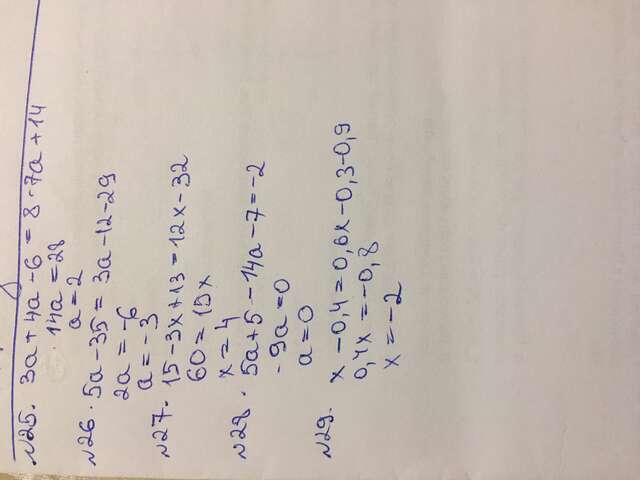 №25. 3a + 4a - 6 = 8 - 7a + 14
14a = 28
a = 2
№26. 5a - 35 = 3a - 12 - 29
2a = -6
a = -3
№27. 15 - 3x + 13 = 12x - 32
60 = 15x
x = 4
№28. 5a + 5 - 14a - 7 = -2
-9a = 0
a = 0
№29. x - 0,4 = 0,6x - 0,3 - 0,9
0,4x = -0,8
x = -2